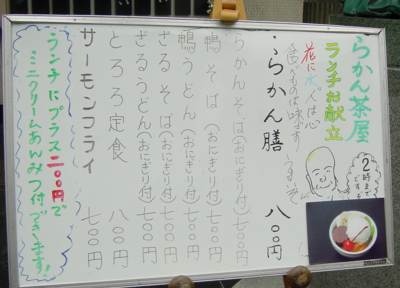 らかん茶屋
ランチお献立
花に水、人は心
2時まで
です
らかん膳 八〇〇円
らかんそば(おにぎり付)七〇〇円
鴨そば(おにぎり付)七〇〇円
鴨うどん(おにぎり付)七〇〇円
ざるそば(おにぎり付)七〇〇円
ざるうどん(おにぎり付)七〇〇円
とろろ定食 八〇〇円
サーモンフライ 七〇〇円
ランチにプラス二〇〇円で
ミニクリームあんみつ付できます!